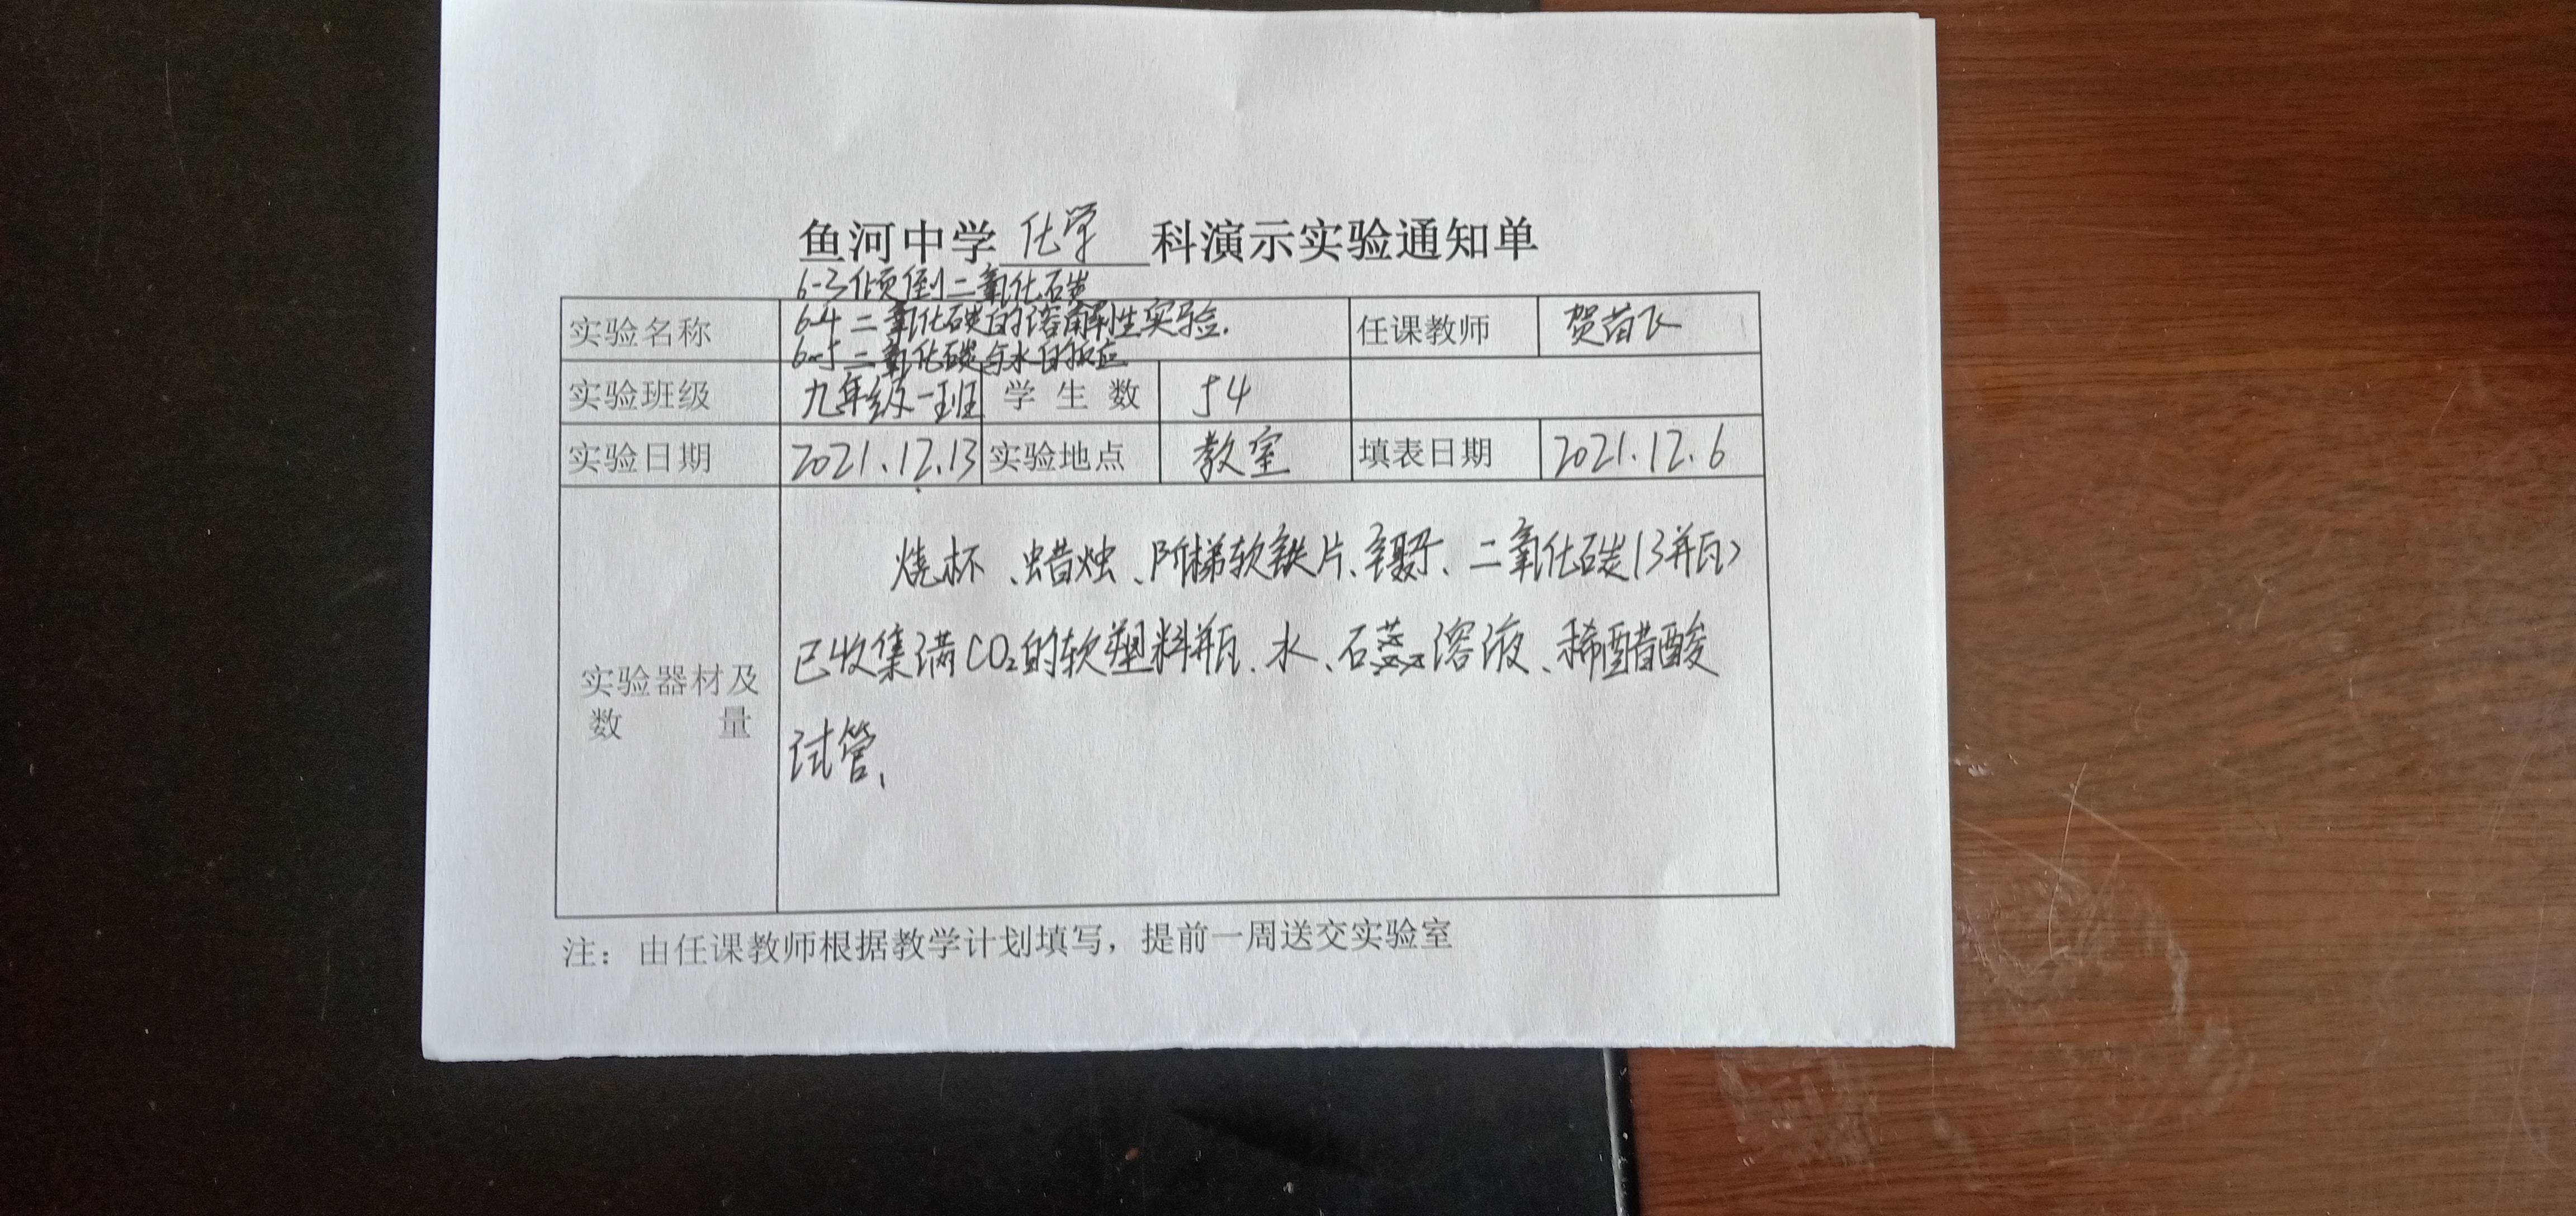 鱼河中学 化学 科演示实验通知单
6-3倾倒二氧化碳
实验名称 6-4 二氧化碳的溶解性实验. 任课教师 贺苗飞
6-5 二氧化碳与水的反应
实验班级 九年级一班 学生数 54
实验日期 2021.12.13 实验地点 教室 填表日期 2021.12.6
烧杯、蜡烛、阶梯软铁片、镊子、二氧化碳(3瓶)
已收集满CO₂的软塑料瓶、水、石蕊溶液、稀醋酸
实验器材及
数量
试管、
注：由任课教师根据教学计划填写，提前一周送交实验室